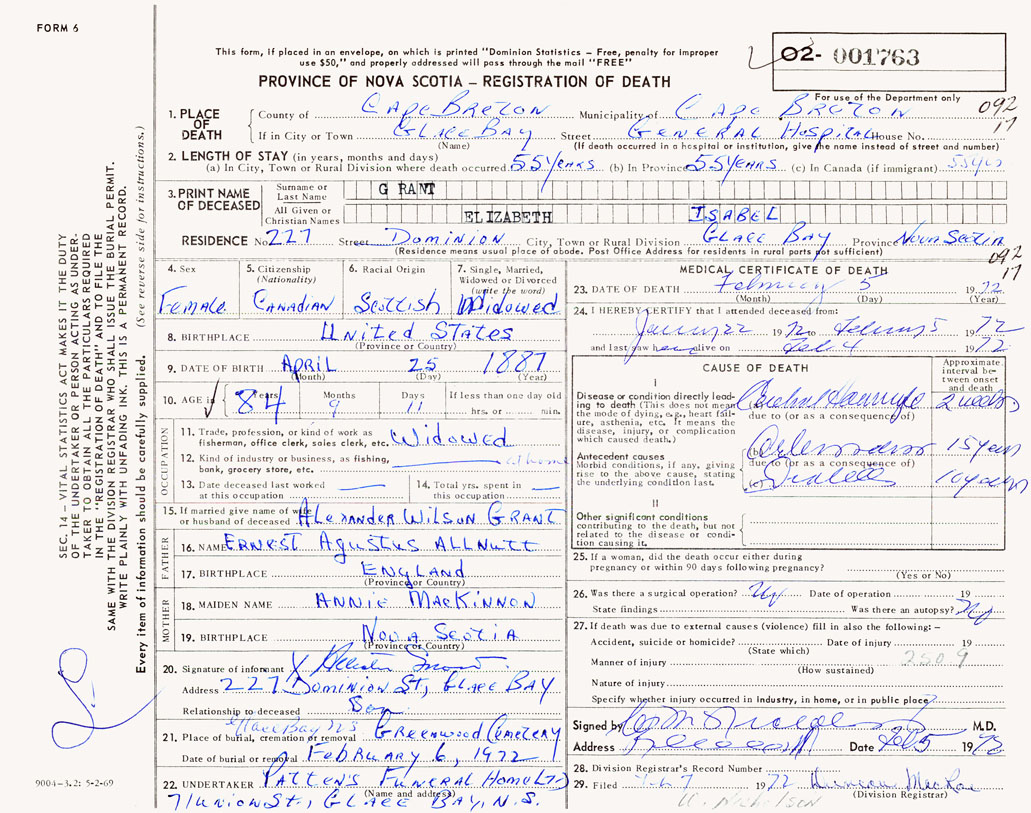 FORM 6
This form, if placed in an envelope, on which is printed "Dominion Statistics – Free, penalty for improper
use $50," and properly addressed will pass through the mail "FREE"
02- 001763
PROVINCE OF NOVA SCOTIA – REGISTRATION OF DEATH
For use of the Department only
092
17
1. PLACE OF DEATH
County of CAPE BRETON Municipality of CAPE BRETON
If in City or Town GLACE BAY Street GENERAL HOSPITAL House No.
(Name) (If death occurred in a hospital or institution, give the name instead of street and number)
2. LENGTH OF STAY (in years, months and days)
(a) In City, Town or Rural Division where death occurred 55 YEARS (b) In Province 55 YEARS (c) In Canada (if immigrant) 55 yrs
3. PRINT NAME OF DECEASED
Surname or Last Name GRANT
All Given or Christian Names ELIZABETH ISABEL
RESIDENCE No. 227 Street DOMINION City, Town or Rural Division GLACE BAY Province NOVA SCOTIA
(Residence means usual place of abode. Post Office Address for residents in rural parts not sufficient)
092
17
4. Sex FEMALE
5. Citizenship (Nationality) CANADIAN
6. Racial Origin SCOTTISH
7. Single, Married, Widowed or Divorced (write the word) WIDOWED
8. BIRTHPLACE UNITED STATES
(Province or Country)
9. DATE OF BIRTH APRIL 25 1887
(Month) (Day) (Year)
10. AGE in Years 84 Months 9 Days 11 If less than one day old
hrs. or min.
OCCUPATION
11. Trade, profession, or kind of work as
fisherman, office clerk, sales clerk, etc. WIDOWED
12. Kind of industry or business, as fishing,
bank, grocery store, etc. at home
13. Date deceased last worked
at this occupation
14. Total yrs. spent in
this occupation
15. If married give name of wife
or husband of deceased ALEXANDER WILSON GRANT
FATHER
16. NAME ERNEST AGUSTUS ALLNUTT
17. BIRTHPLACE ENGLAND
(Province or Country)
MOTHER
18. MAIDEN NAME ANNIE MACKINNON
19. BIRTHPLACE NOVA SCOTIA
(Province or Country)
20. Signature of informant X
Address 227 DOMINION ST, GLACE BAY
Relationship to deceased Son
Glace Bay
21. Place of burial, cremation or removal GREENWOOD CEMETERY
Date of burial or removal FEBRUARY 6, 1972
22. UNDERTAKER PATTEN'S FUNERAL HOME LTD
(Name and address)
71 UNION ST., GLACE BAY, N.S.
MEDICAL CERTIFICATE OF DEATH
23. DATE OF DEATH February 5 1972
(Month) (Day) (Year)
24. I HEREBY CERTIFY that I attended deceased from:
January 22 1972 to February 5 1972
and last saw her alive on Feb 4 1972
CAUSE OF DEATH
Approximate interval between onset and death
I
Disease or condition directly leading
to death (This does not mean
the mode of dying, e.g., heart failure,
asthenia, etc. It means the
disease, injury, or complication
which caused death.)
(a) 2 weeks
due to (or as a consequence of)
Antecedent causes
Morbid conditions, if any, giving
rise to the above cause, stating
the underlying condition last.
(b) 15 years
due to (or as a consequence of)
(c) 10 years
II
Other significant conditions
contributing to the death, but not
related to the disease or condition
causing it.
25. If a woman, did the death occur either during
pregnancy or within 90 days following pregnancy?
(Yes or No)
26. Was there a surgical operation? Date of operation 19
State findings Was there an autopsy?
27. If death was due to external causes (violence) fill in also the following:–
Accident, suicide or homicide? Date of injury 19
(State which)
Manner of injury 250 9
(How sustained)
Nature of injury
Specify whether injury occurred in industry, in home, or in public place
Signed by M.D.
Address Date Feb 5 1972
28. Division Registrar's Record Number
29. Filed Feb 7 1972 Duncan MacRae
(Division Registrar)
SEC. 14 – VITAL STATISTICS ACT MAKES IT THE DUTY
OF THE UNDERTAKER OR PERSON ACTING AS UNDERTAKER
TO OBTAIN ALL THE PARTICULARS REQUIRED
IN THE "REGISTRATION OF DEATH" AND TO FILE THE
SAME WITH THE DIVISION REGISTRAR WHO SHALL ISSUE THE BURIAL PERMIT.
WRITE PLAINLY WITH UNFADING INK. THIS IS A PERMANENT RECORD.
Every item of information should be carefully supplied. (See reverse side for instructions.)
9004-3.2: 5-2-69